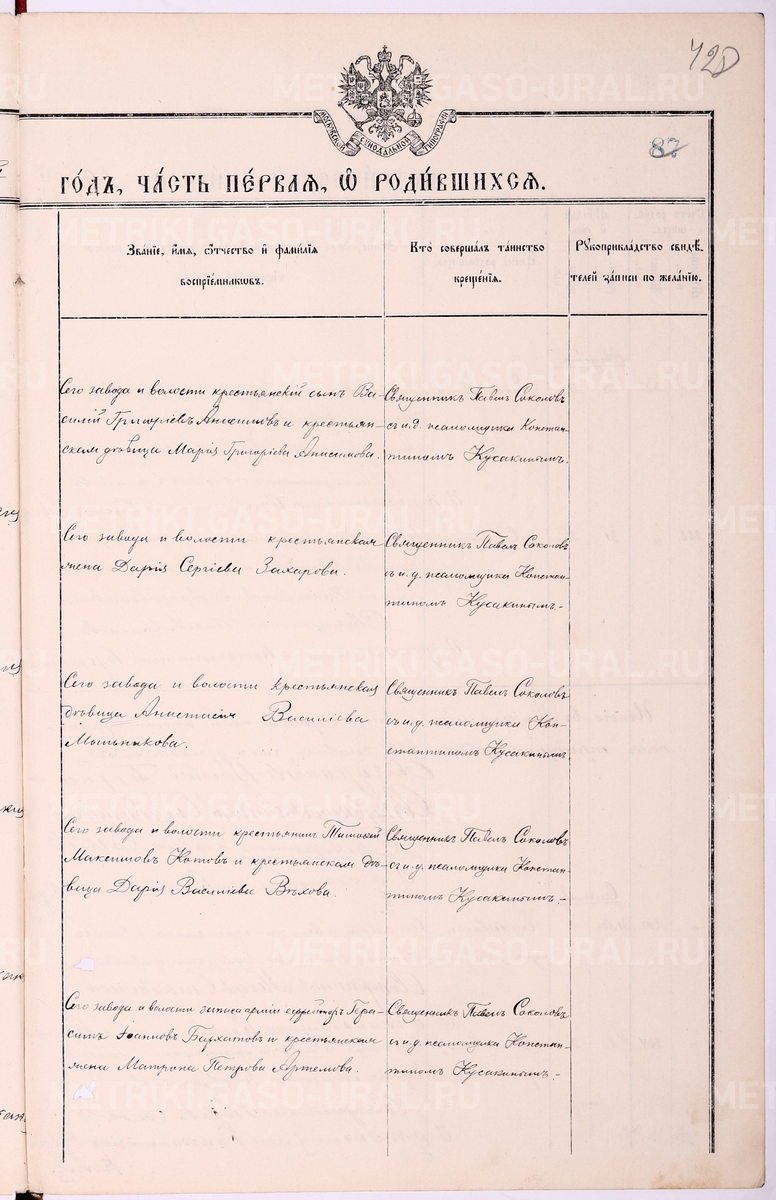 420
87
МОСКОВСКОЙ СѴНОДАЛЬНОЙ ТИПОГРАФІИ
ГО́ДЪ, ЧА́СТЬ ПЕ́РВАЯ, Ѡ҆ РОДИ́ВШИХСЯ.
Зва́ніе, и҆́мя, ѻ҆́тчество и҆ фами́лія
воспріе́мникѡвъ.
Кто̀ соверша́лъ та́инство
креще́нія.
Рꙋкоприкла́дство свидѣ́-
телей за́писи по жела́нію.
Сего завода и волости крестьянскій сынъ Ва-
силій Григоріевъ Анисимовъ и крестьян-
ская дѣвица Марія Григоріева Анисимова.
Священникъ Павелъ Соколовъ
съ и.д. псаломщика Констан-
тиномъ Кусакинымъ.
Сего завода и волости крестьянская
жена Дарія Сергіева Захарова.
Священникъ Павелъ Соколовъ
съ и.д. псаломщика Констан-
тиномъ Кусакинымъ.-
Сего завода и волости крестьянская
дѣвица Анастасія Василіева
Мыльникова.
Священникъ Павелъ Соколовъ
съ и.д. псаломщика Кон-
стантиномъ Кусакинымъ
Сего завода и волости крестьянинъ Тимофей
Максимовъ Котовъ и крестьянская дѣ-
вица Дарія Василіева Вѣхова.
Священникъ Павелъ Соколовъ
съ и.д. псаломщика Констан-
тиномъ Кусакинымъ.-
Сего завода и волости запаса арміи ефрейторъ Гера-
симъ Іоанновъ Бархатовъ и крестьянская
жена Матрона Петрова Артемова.
Священникъ Павелъ Соколовъ
съ и.д. псаломщика Констан-
тиномъ Кусакинымъ.-
METRIKI.GASO-URAL.RU